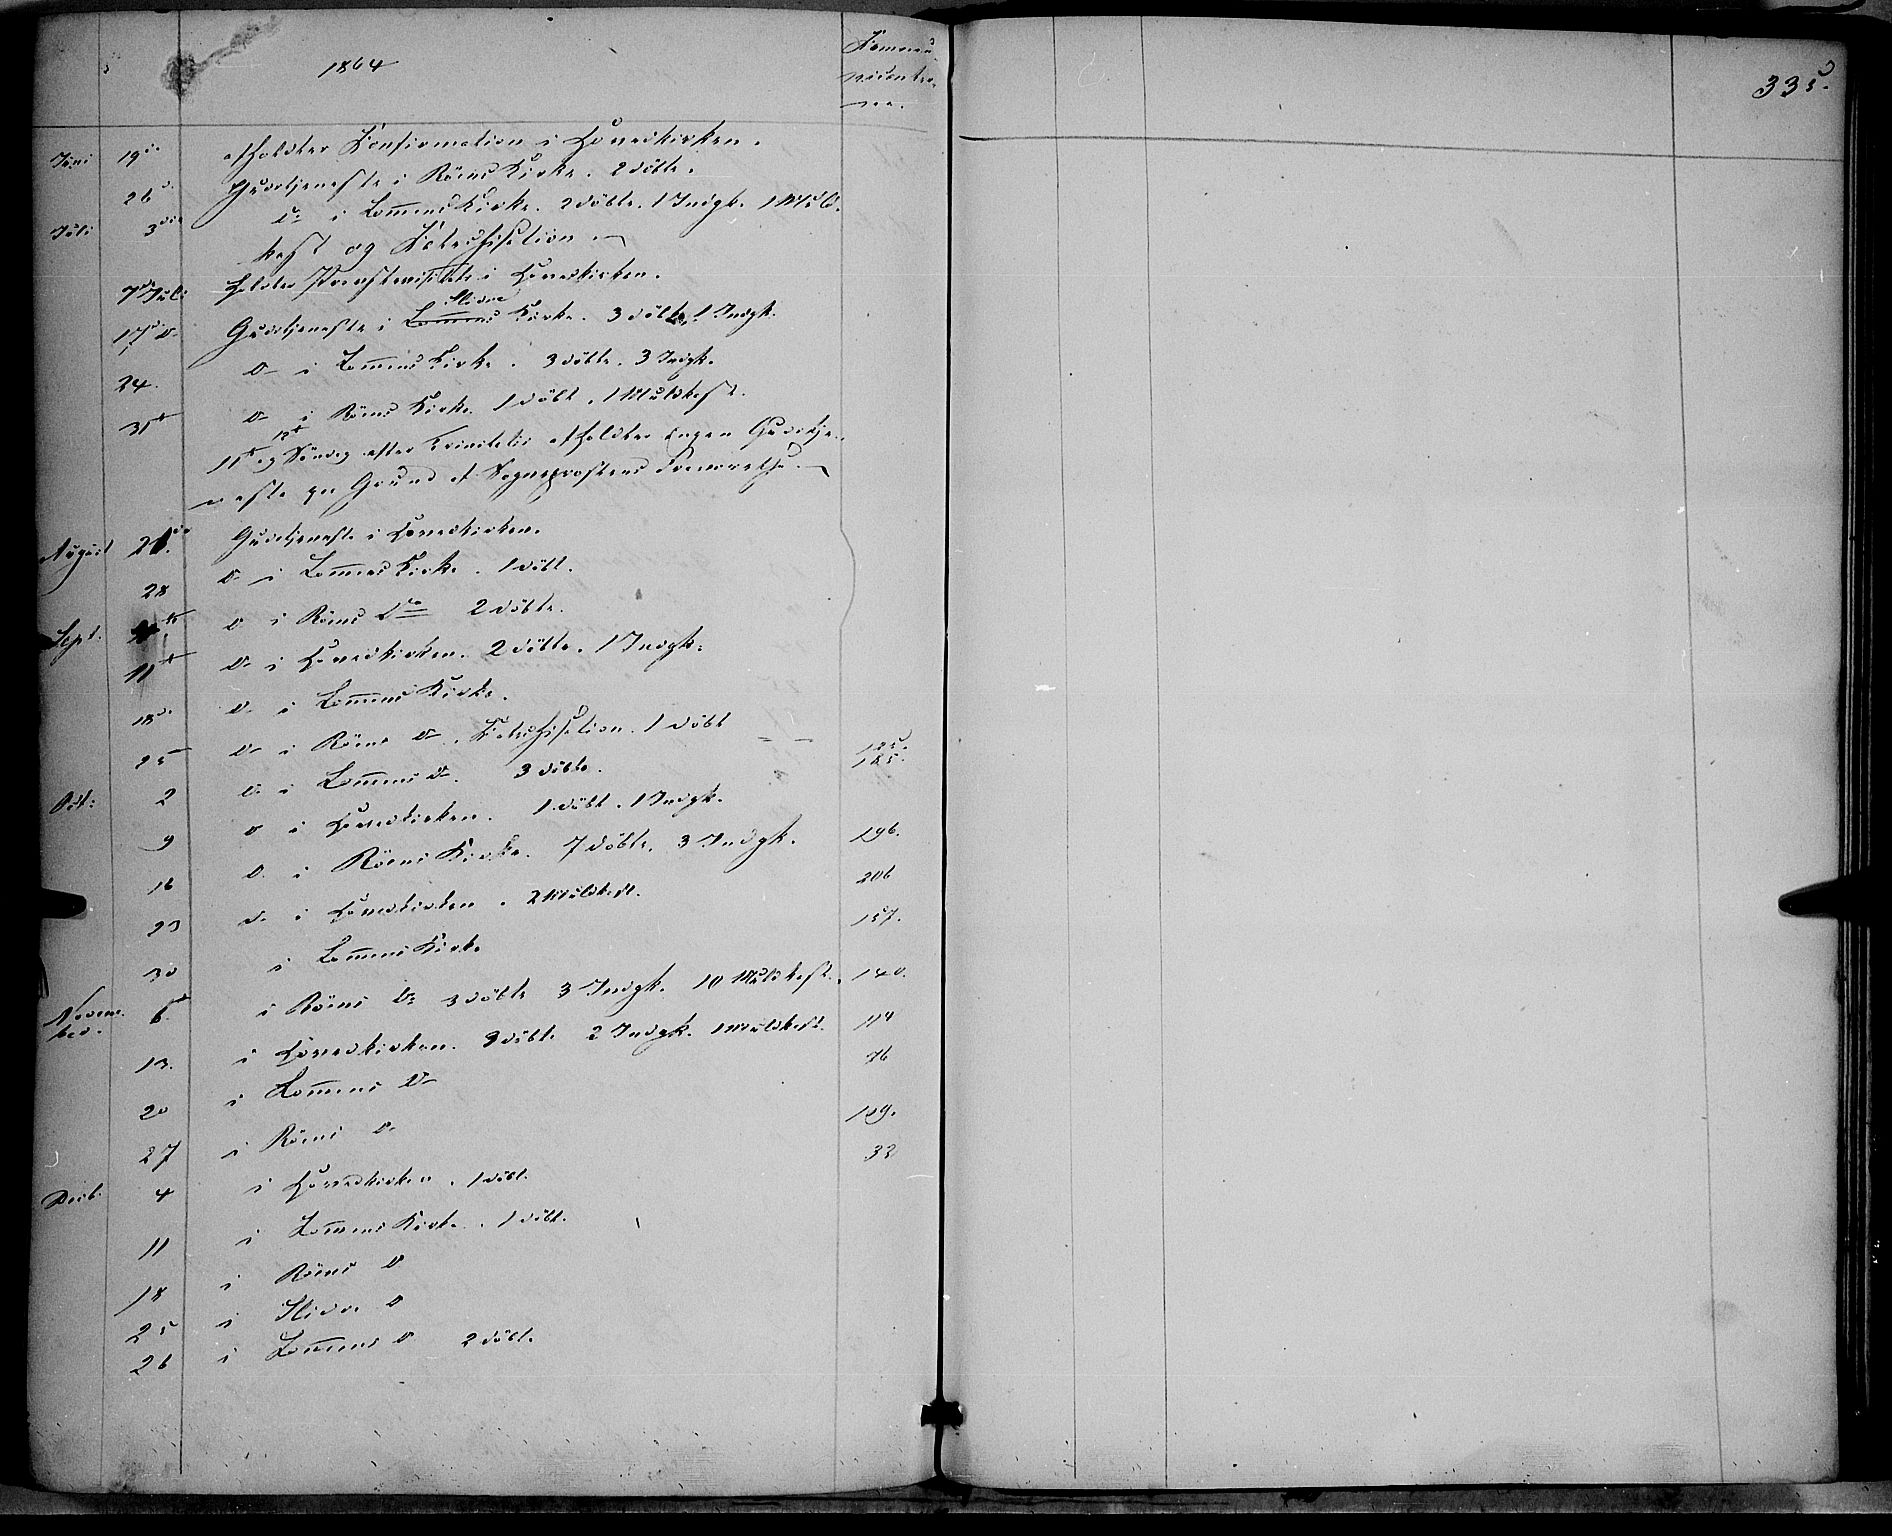 1864
Kommu-
nicante-
ne.
335.
Juni 19de afholdtes Konfirmation i Hovedkirken.
26de Gudstjeneste i Röens Kirke. 2 döbte.
Juli 3die Do i Lommens Kirke. 2 döbte. 1 Indgk. 1 Muld-
kast og Katechisation.
7de Juli holdtes i Hovedkirken.
17de Do Gudstjeneste i Lommens Slidre Kirke. 3 döbte, 1 Indgk.
24. Do i Lommens Kirke. 3 döbte. 3 Indgk.
31te Do i Röens Kirke. 1 döbt, 1 Muldkast.
11te og 12te Söndag efter Trinitatis afholdtes ingen Gudstje-
neste paa Grund af Sogneprestens Fraværelse.
August 21de Gudstjeneste i Hovedkirken.
28 Do i Lommens Kirke. 1 döbt.
Sept. 4de Do i Röens Do 2 döbte.
11te Do i Hovedkirken. 2 döbte. 1 Indgk.
18de Do i Lommens Kirke.
25 Do i Röens Do. Katechisation. 1 döbt 125.
Oct: 2 Do i Lommens Do. 3 döbte. 185.
9 Do i Hovedkirken. 1 döbt. 1 Indgk.
16 Do i Röens Kirke. 7 döbte. 3 Indgk. 196.
23 Do i Hovedkirken. 2 Muldkast. 206
30 i Lommens Kirke 157.
Novem-
ber. 6te i Röens Do 3 döbte 3 Indgk. 10 Muldkast. 140.
13. i Hovedkirken. 3 döbte 2 Indgk. 1 Muldkast. 114
20 i Lommens Do 76
27 i Röens Do 109.
Decb. 4 i Hovedkirken. 1 döbt. 32
11 i Lommens Kirke. 1 döbt.
18 i Röens Do
25 i Slidre Do
26 i Lommens Do 2 döbt.